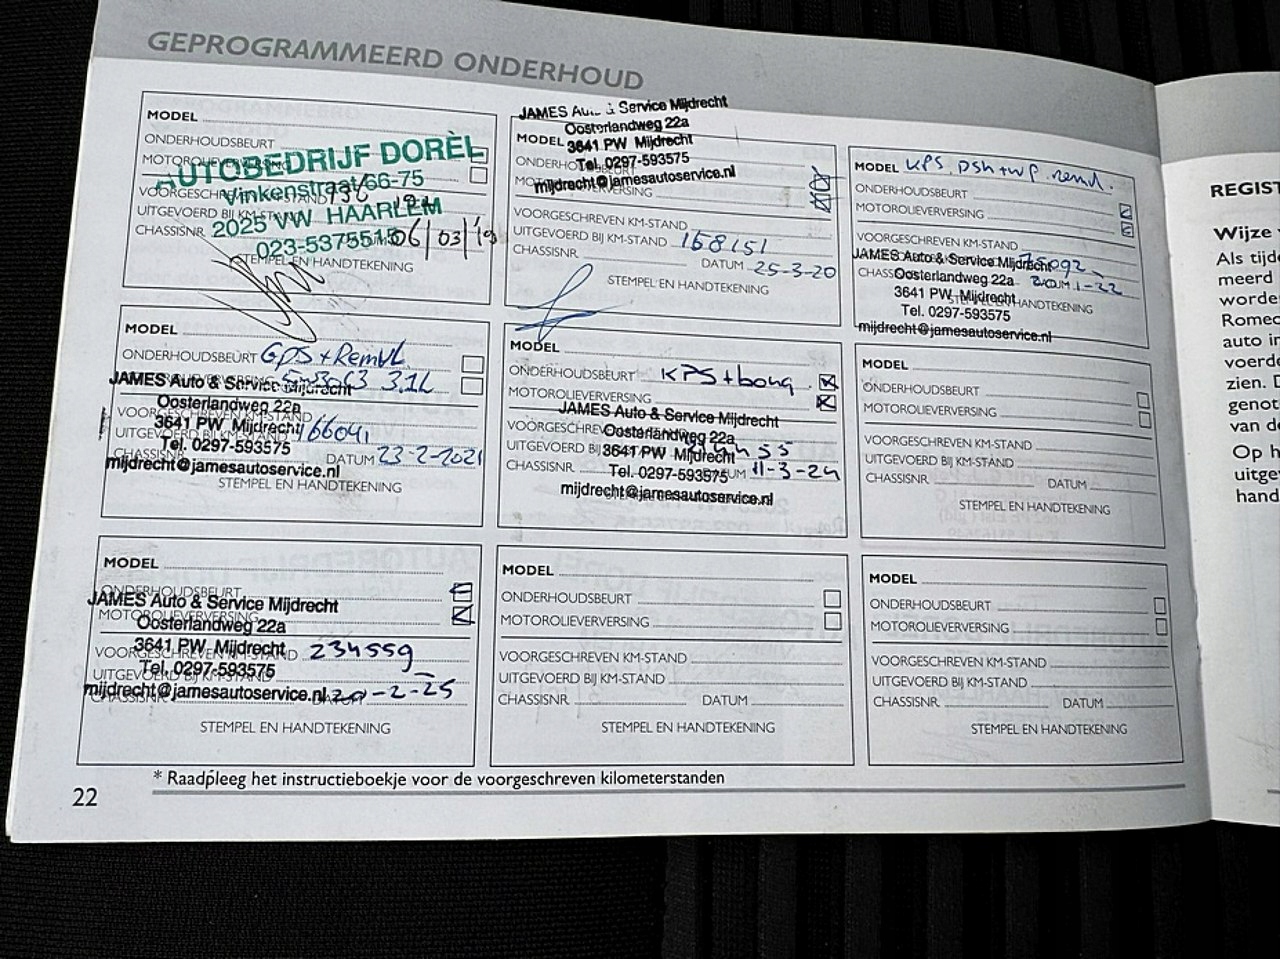 GEPROGRAMMEERD ONDERHOUD
MODEL
ONDERHOUDSBEURT
AUTOBEDRIJF DORÈL
Vinkenstraat 66-75
UITGEVOERD BIJ KM-STAND
2025 VW HAARLEM
CHASSISNR.
023-5375515
06/03/19
STEMPEL EN HANDTEKENING
JAMES Auto & Service Mijdrecht
Oosterlandweg 22a
MODEL
3641 PW Mijdrecht
Tel. 0297-593575
mijdrecht@jamesautoservice.nl
VOORGESCHREVEN KM-STAND
UITGEVOERD BIJ KM-STAND 158151
CHASSISNR. DATUM 25-3-20
STEMPEL EN HANDTEKENING
MODEL KPS
ONDERHOUDSBEURT
MOTOROLIEVERVERSING
VOORGESCHREVEN KM-STAND
JAMES Auto & Service Mijdrecht
Oosterlandweg 22a
3641 PW Mijdrecht
STEMPEL EN HANDTEKENING
Tel. 0297-593575
mijdrecht@jamesautoservice.nl
MODEL
ONDERHOUDSBEURT GPS + RemVL
JAMES Auto & Service Mijdrecht
Oosterlandweg 22a
VOORGESCHREVEN KM-STAND
3641 PW Mijdrecht
UITGEVOERD BIJ KM-STAND 166041
Tel. 0297-593575
CHASSISNR. DATUM 23-2-2021
mijdrecht@jamesautoservice.nl
STEMPEL EN HANDTEKENING
MODEL
ONDERHOUDSBEURT KPS + bong
MOTOROLIEVERVERSING
JAMES Auto & Service Mijdrecht
Oosterlandweg 22a
UITGEVOERD BIJ
3641 PW Mijdrecht
CHASSISNR. 11-3-24
Tel. 0297-593575
mijdrecht@jamesautoservice.nl
MODEL
ONDERHOUDSBEURT
MOTOROLIEVERVERSING
VOORGESCHREVEN KM-STAND
UITGEVOERD BIJ KM-STAND
CHASSISNR. DATUM
STEMPEL EN HANDTEKENING
MODEL
ONDERHOUDSBEURT
JAMES Auto & Service Mijdrecht
MOTOROLIEVERVERSING
Oosterlandweg 22a
3641 PW Mijdrecht
VOORGESCHREVEN KM-STAND 234559
Tel. 0297-593575
UITGEVOERD BIJ KM-STAND
mijdrecht@jamesautoservice.nl 20-2-25
STEMPEL EN HANDTEKENING
MODEL
ONDERHOUDSBEURT
MOTOROLIEVERVERSING
VOORGESCHREVEN KM-STAND
UITGEVOERD BIJ KM-STAND
CHASSISNR. DATUM
STEMPEL EN HANDTEKENING
MODEL
ONDERHOUDSBEURT
MOTOROLIEVERVERSING
VOORGESCHREVEN KM-STAND
UITGEVOERD BIJ KM-STAND
CHASSISNR. DATUM
STEMPEL EN HANDTEKENING
* Raadpleeg het instructieboekje voor de voorgeschreven kilometerstanden
22
REGIST
Wijze
Als tijde
meerd
worde
Romec
auto in
voerde
zien. D
genot
van de
Op h
uitge
hand